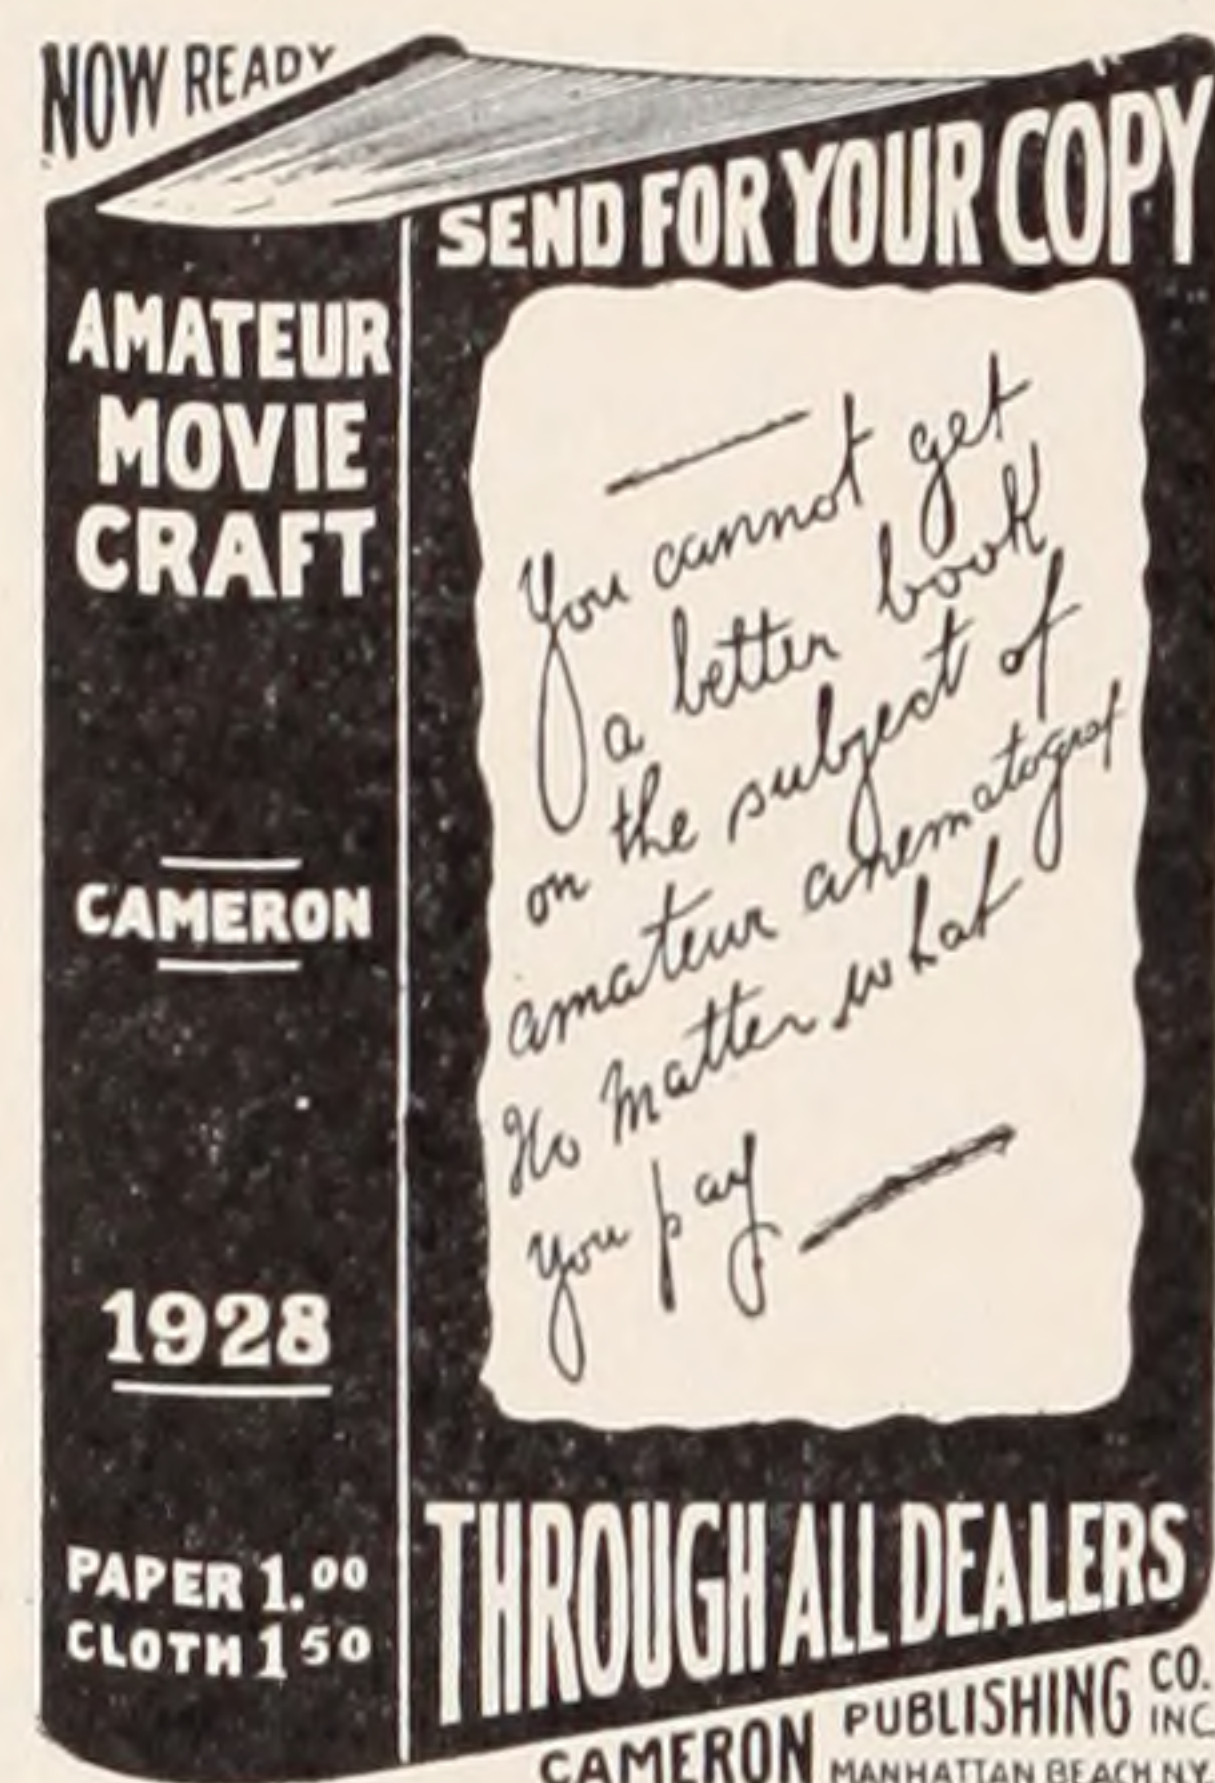 NOW READY
SEND FOR YOUR COPY
AMATEUR
MOVIE
CRAFT
CAMERON
1928
PAPER 1.00
CLOTH 1 50
You cannot get
a better book
on the subject of
amateur cinematograf
No Matter what
you pay
THROUGH ALL DEALERS
CAMERON PUBLISHING CO. INC
MANHATTAN BEACH NY.